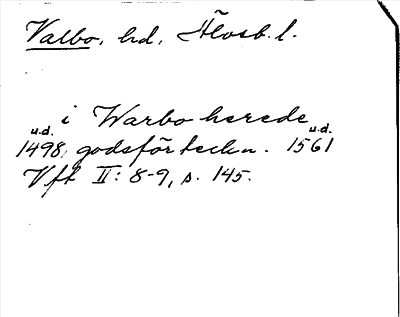 Valbo, hd, Älvsb. l.
i Warbo herede
u.d. u.d.
1498, godsförteckn. 1561
Vft II: 8-9, s. 145.